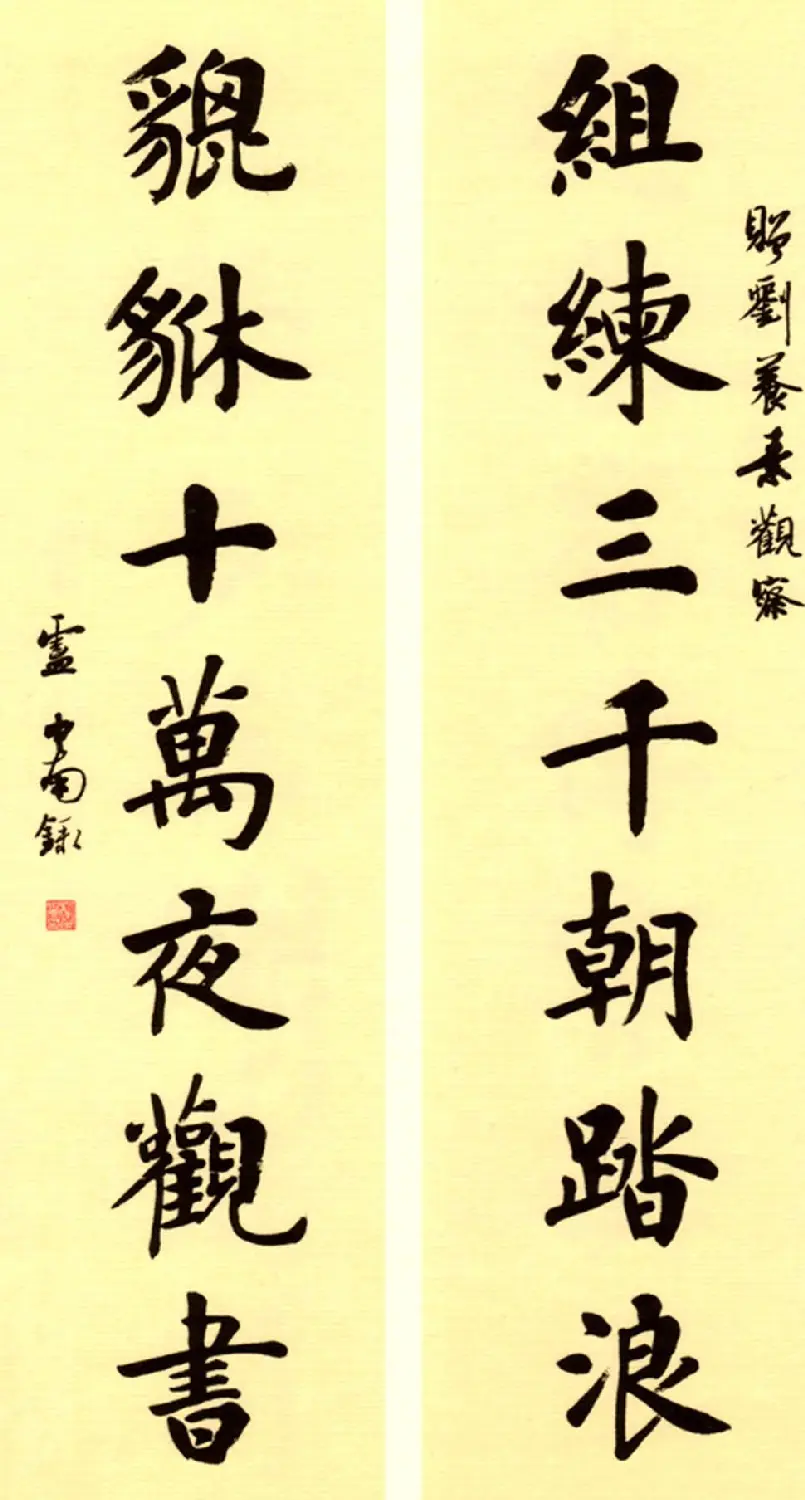 贈劉養素觀察
組練三千朝踏浪
貔貅十萬夜觀書
中南錄